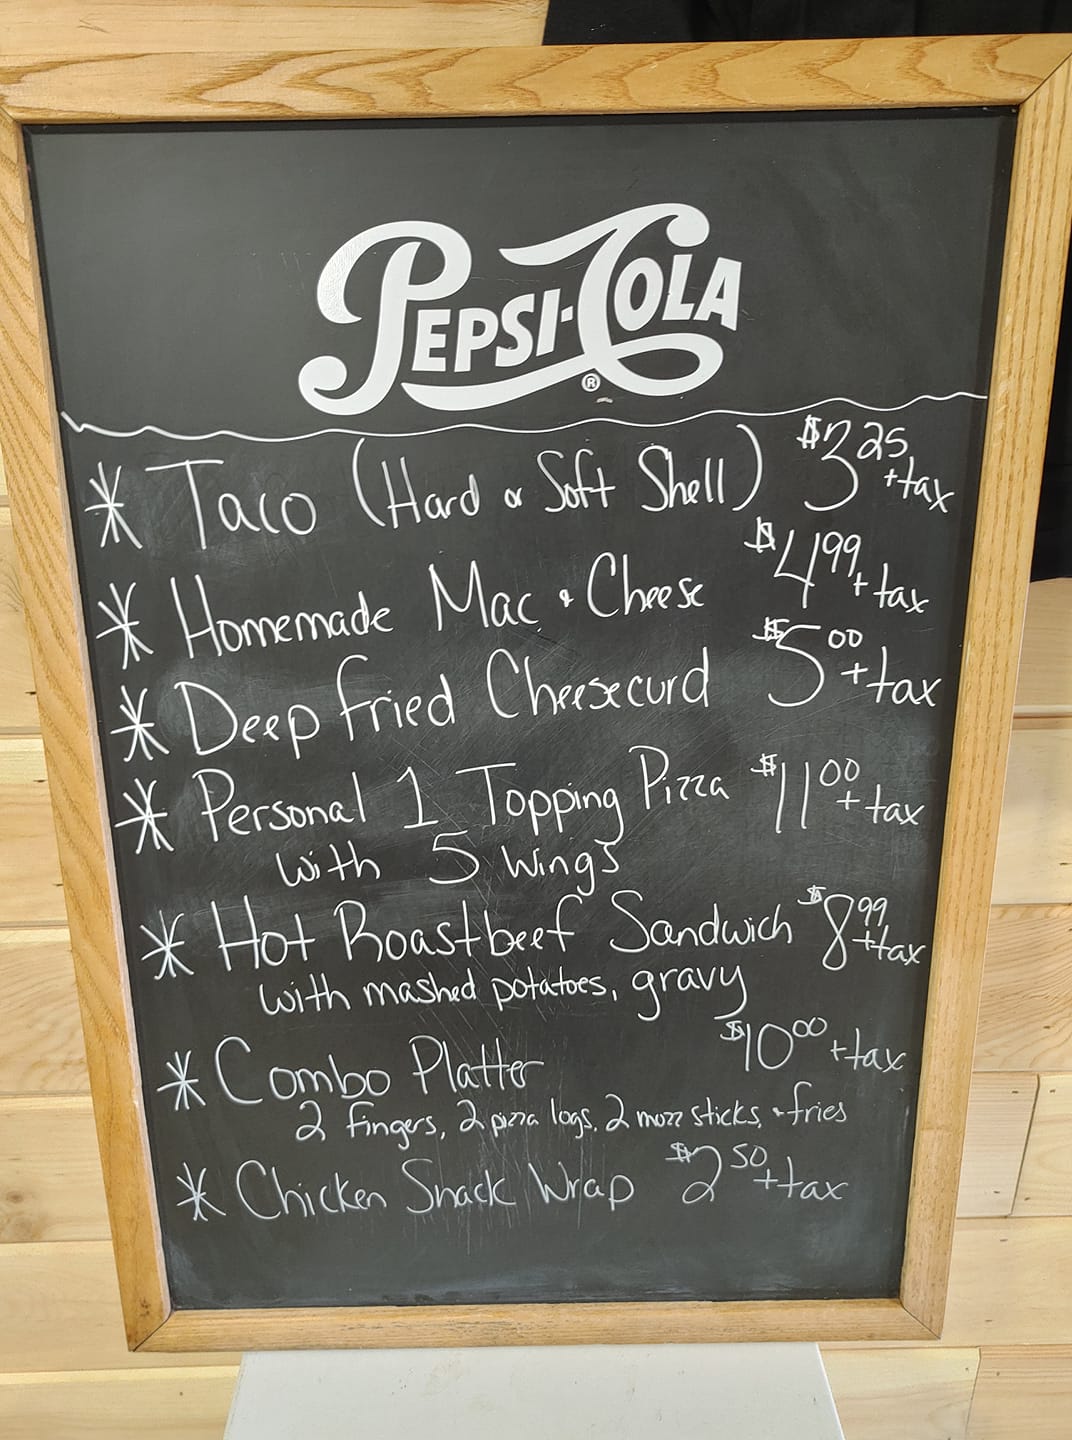 PEPSI-COLA ®
* Taco (Hard or Soft Shell) $3.25 + tax
* Homemade Mac & Cheese $4.99 + tax
* Deep fried Cheesecurd $5.00 + tax
* Personal 1 Topping Pizza $11.00 + tax
with 5 wings
* Hot Roastbeef Sandwich $8.99 + tax
with mashed potatoes, gravy
* Combo Platter $10.00 + tax
2 fingers, 2 pizza logs, 2 mozz sticks, & fries
* Chicken Snack Wrap $2.50 + tax